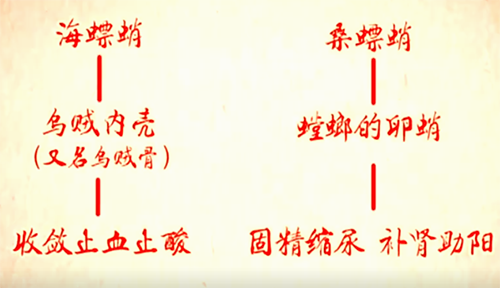 海螵蛸
桑螵蛸
乌贼内壳
（又名乌贼骨）
螳螂的卵蛸
收敛止血止酸
固精缩尿 补肾助阳